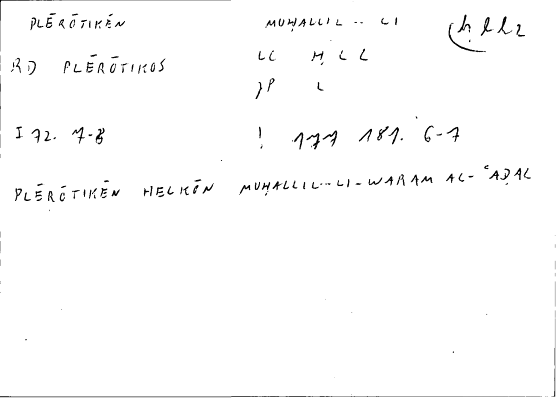 PLĒRŌTIKĒN MUḤALLIL -- LI ḥll2
RD PLĒRŌTIKOS LL ḤLL
JP L
I 72. 7-8 ! 177 181. 6-7
PLĒRŌTIKĒN HELKŌN MUḤALLIL--LI-WARAM AL-ʿAḌAL